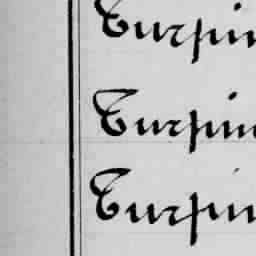 Turpin
Turpin
Turpin